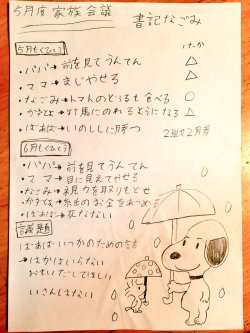 5月度 家族会議
書記なごみ
5月もくひょう
けっか
・パパ→前を見てうんてん △
・ママ→まじやせる △
・なごみ→トマトのどうるも食べる ○
・かずとよ→竹馬にのれるようになる △
・ばあば→いのししに勝つ 2勝2月春
6月もくひょう
・パパ→前を見てうんてん
・ママ→目に見えてやせる
・なごみ→視力を取りもどせ
・かずとよ→紙のお金をあつめる
・ばあば→死なない
議題
ばあば いつかのための
→はかはいらない
おもいだしてほしい
いさんもない